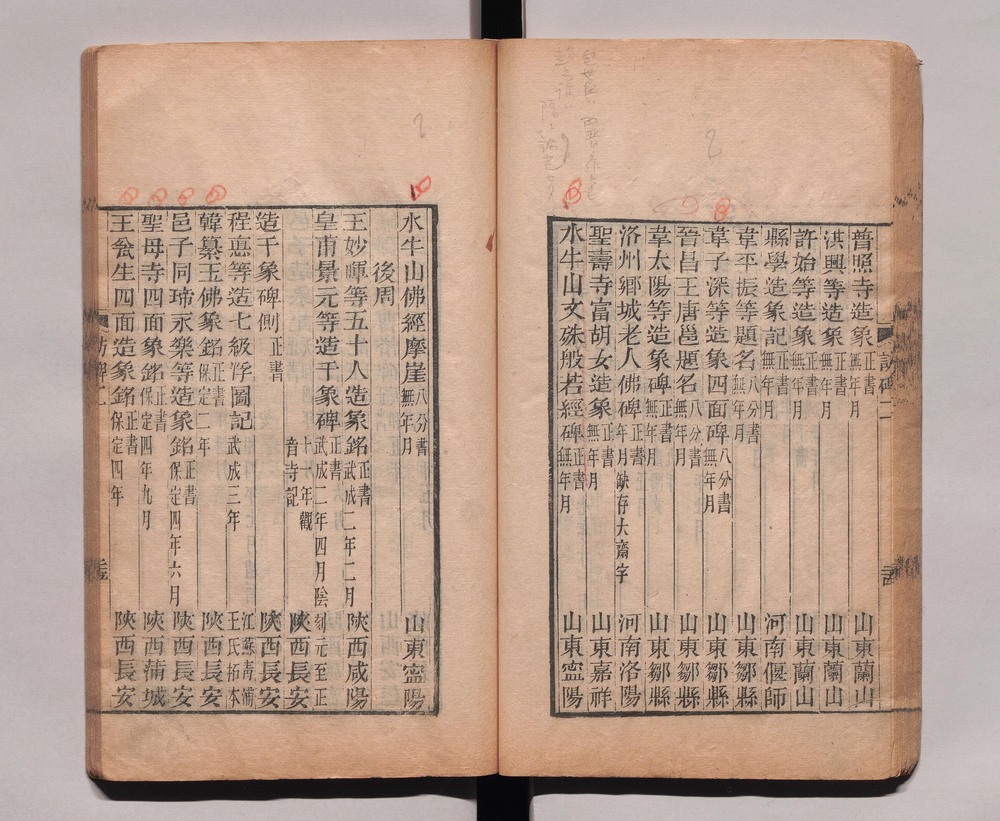 普照寺造象正書無年月 山東蘭山
淇興等造象正書無年月 山東蘭山
許始等造象正書無年月 山東蘭山
縣學造象記正書無年月 河南偃師
韋平振等題名八分書無年月 山東鄒縣
韋子深等造象四面碑八分書無年月 山東鄒縣
晉昌王唐邕題名八分書無年月 山東鄒縣
韋太陽等造象碑正書無年月 山東鄒縣
洛州鄉城老人佛碑正書年月缺存大齋字 河南洛陽
聖壽寺富胡女造象正書無年月 山東嘉祥
水牛山文殊般若經碑正書無年月 山東寧陽
水牛山佛經摩崖八分書無年月 山東寧陽
後周
王妙暉等五十人造象銘正書武成二年二月 陝西咸陽
皇甫景元等造千象碑正書武成二年四月陰刻元至正十一年觀音寺記 陝西長安
造千象碑側正書 陝西長安
程悳等造七級浮圖記武成三年 江蘇青浦王氏拓本
韓纂玉佛象銘正書保定二年 陝西長安
邑子同琋永樂等造象銘正書保定四年六月 陝西長安
聖母寺四面象銘正書保定四年九月 陝西蒲城
王瓮生四面造象銘正書保定四年 陝西長安
訪碑二